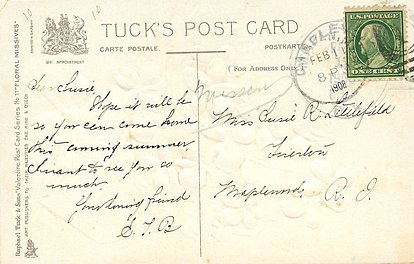 TUCK'S POST CARD
CARTE POSTALE.
POSTKARTE
BY APPOINTMENT
(FOR ADDRESS ONLY)
Dear Susie,
Hope it will be
so you can come home
this coming summer
I want to see you so
much.
Your loving friend
Miss Susie R. Littlefield
Maplewood R. I.
FEB 11
8 P
1909
U.S. POSTAGE
ONE CENT
Raphael Tuck & Sons' Valentine Post Card Series "FLORAL MISSIVES"
ART PUBLISHERS TO THEIR MAJESTIES THE KING & QUEEN